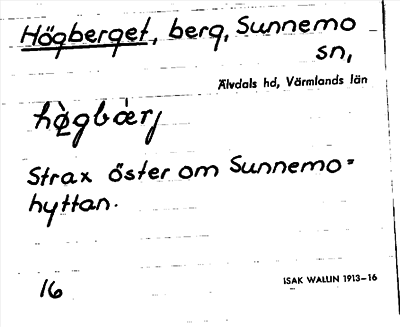 Högberget, berg, Sunnemo
sn,
Älvdals hd, Värmlands län
hø̀gbær̀j
Strax öster om Sunnemo=
hyttan.
16
ISAK WALLIN 1913–16